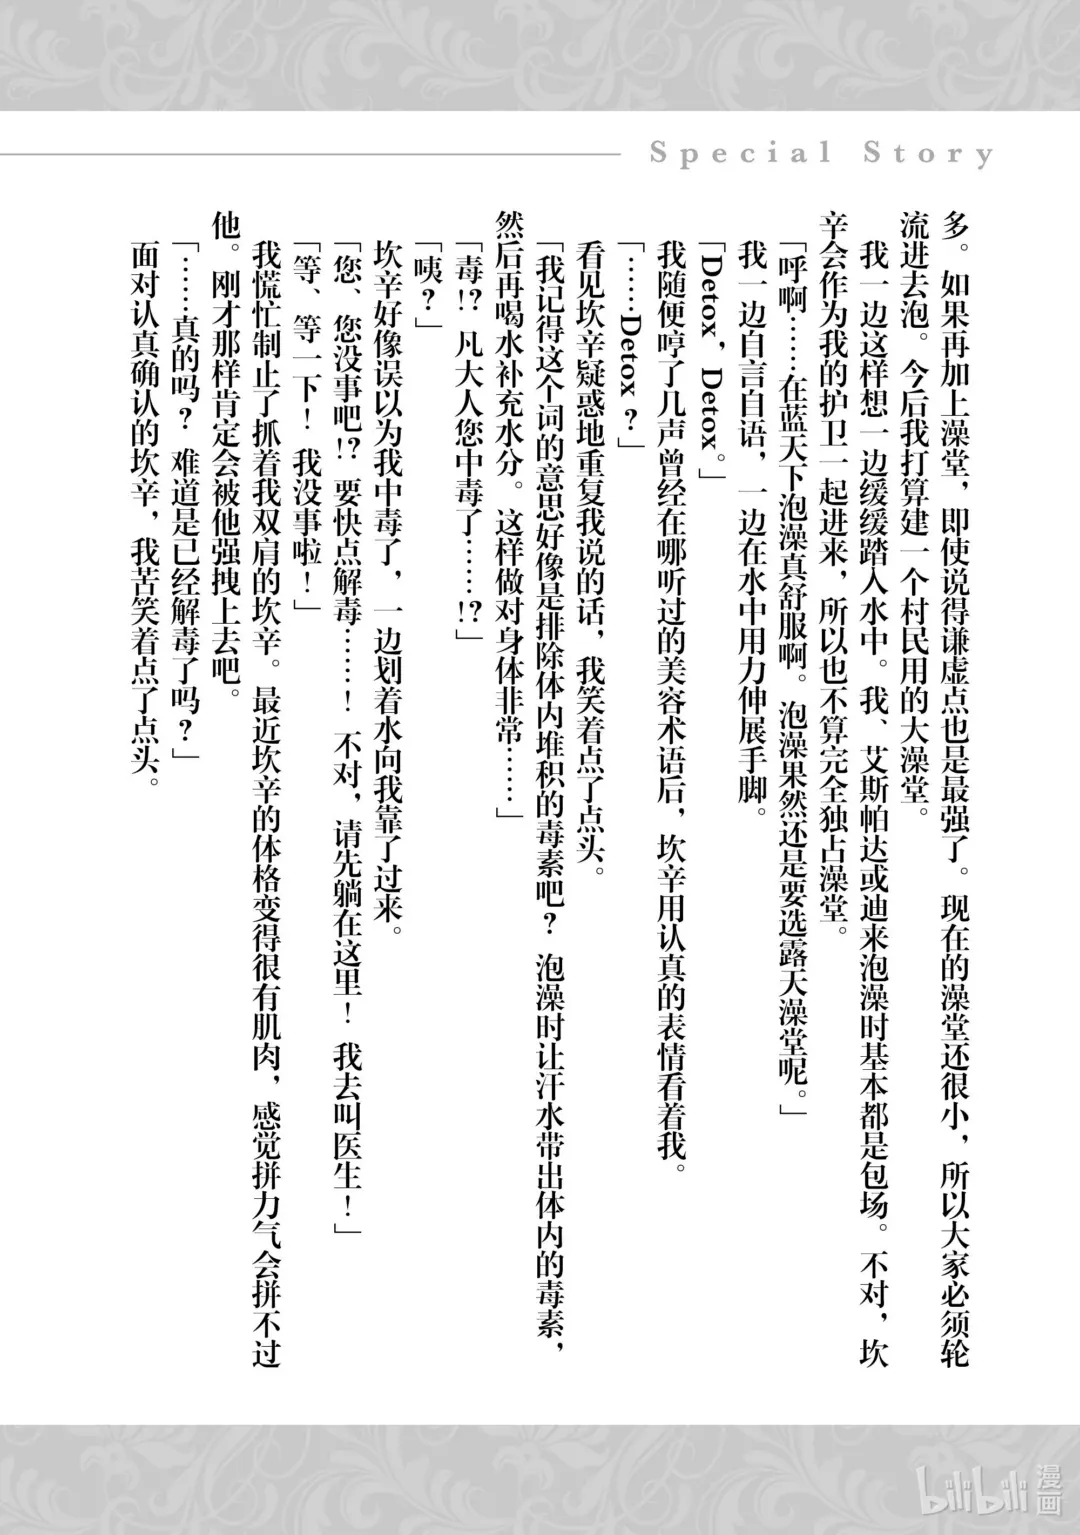 Special Story
多。如果再加上澡堂，即使说得谦虚点也是最强了。现在的澡堂还很小，所以大家必须轮
流进去泡。今后我打算建一个村民用的大澡堂。
我一边这样想一边缓缓踏入水中。我、艾斯帕达或迪来泡澡时基本都是包场。不对，坎
辛会作为我的护卫一起进来，所以也不算完全独占澡堂。
「呼啊……在蓝天下泡澡真舒服啊。泡澡果然还是要选露天澡堂呢。」
我一边自言自语，一边在水中用力伸展手脚。
「Detox，Detox。」
我随便哼了几声曾经在哪听过的美容术语后，坎辛用认真的表情看着我。
「……Detox？」
看见坎辛疑惑地重复我说的话，我笑着点了点头。
「我记得这个词的意思好像是排除体内堆积的毒素吧？泡澡时让汗水带出体内的毒素，
然后再喝水补充水分。这样做对身体非常……」
「毒!?凡大人您中毒了……!?」
「咦？」
坎辛好像误以为我中毒了，一边划着水向我靠了过来。
「您、您没事吧!?要快点解毒……！不对，请先躺在这里！我去叫医生！」
「等、等一下！我没事啦！」
我慌忙制止了抓着我双肩的坎辛。最近坎辛的体格变得很有肌肉，感觉拼力气会拼不过
他。刚才那样肯定会被他强拽上去吧。
「……真的吗？难道是已经解毒了吗？」
面对认真确认的坎辛，我苦笑着点了点头。
bilibili
漫画